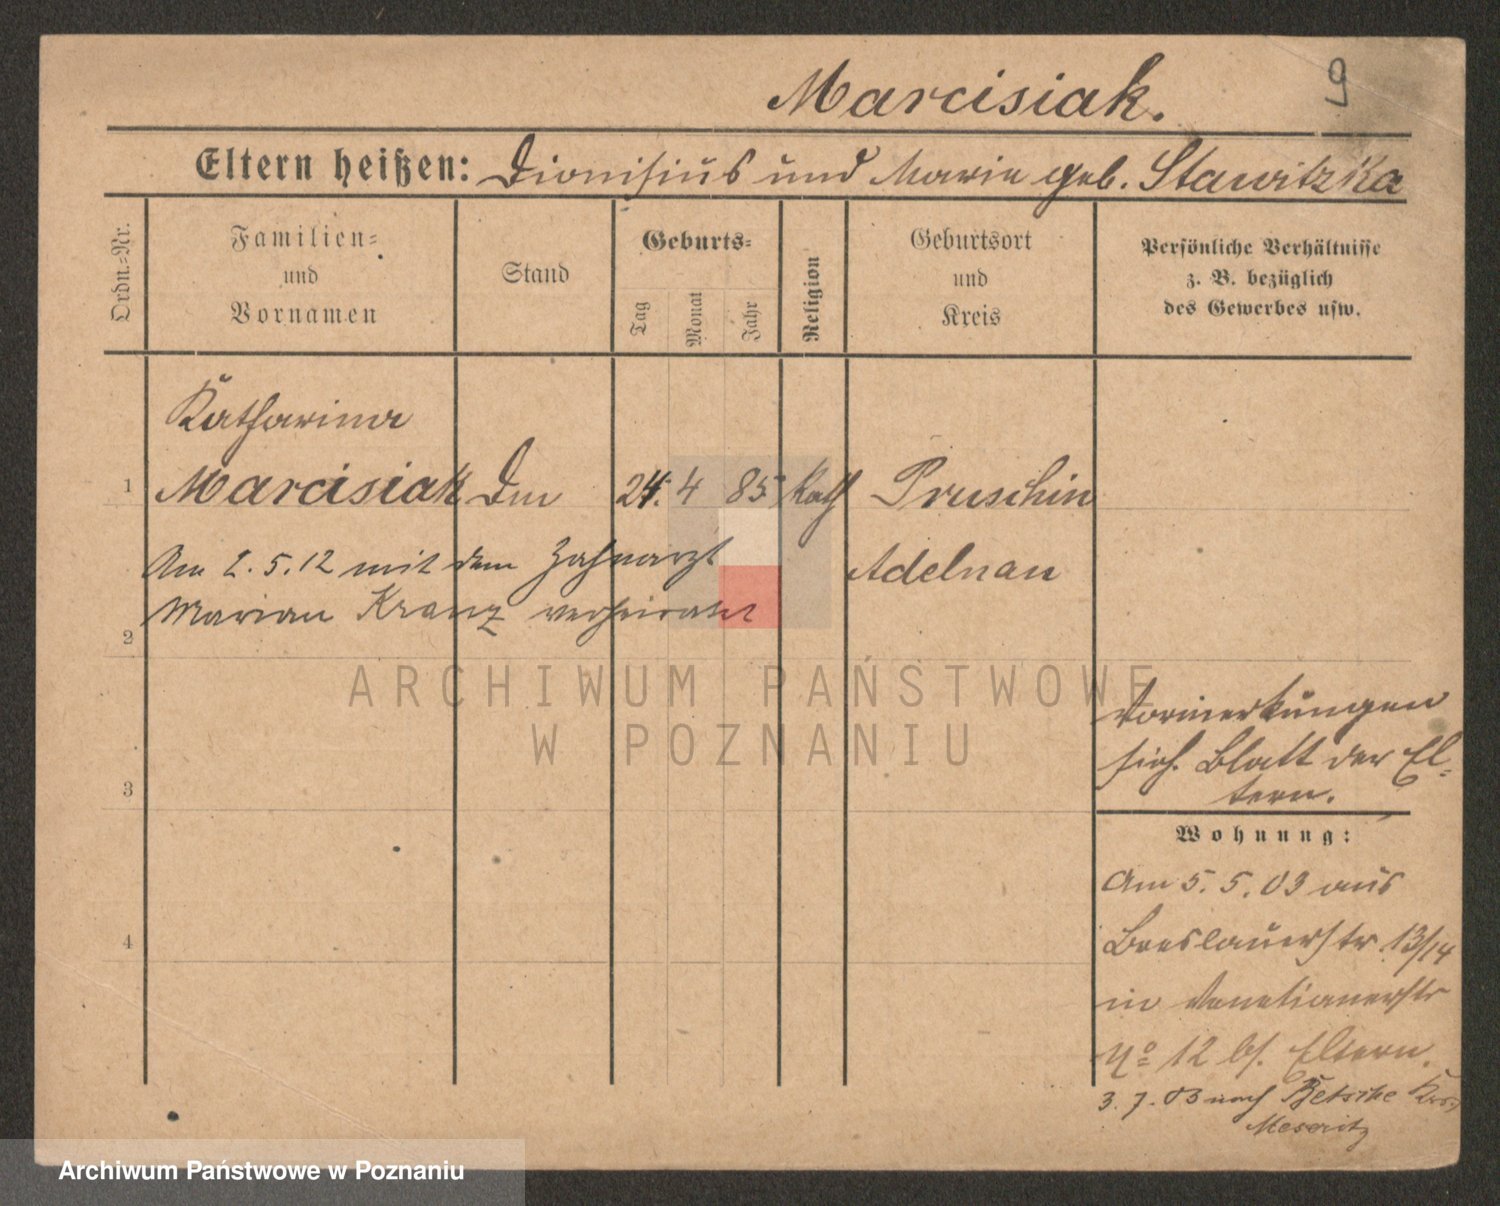 Marcisiak.
9
Eltern heißen: Dionisius und Marie geb. Stawitzka
Ordn.-Nr.
Familien-
und
Vornamen
Stand
Geburts-
Tag
Monat
Jahr
Religion
Geburtsort
und
Kreis
Persönliche Verhältnisse
z. B. bezüglich
des Gewerbes usw.
Katharina
1 Marcisiak 24. 4 85 Kath Pruschin
Am 2.5.12 mit dem Zahnarzt
Adelnau
Marian Kranz verheiratet
2
3
4
Vormerkungen
sieh. Blatt der El-
tern.
Wohnung:
Am 5. 5. 03 aus
Breslauerstr 13/14
in Venetianerstr
No 12 bs. Eltern.
3. 7. 03 nach Betsche Krs.
Meseritz
ARCHIWUM PAŃSTWOWE
W POZNANIU
Archiwum Państwowe w Poznaniu